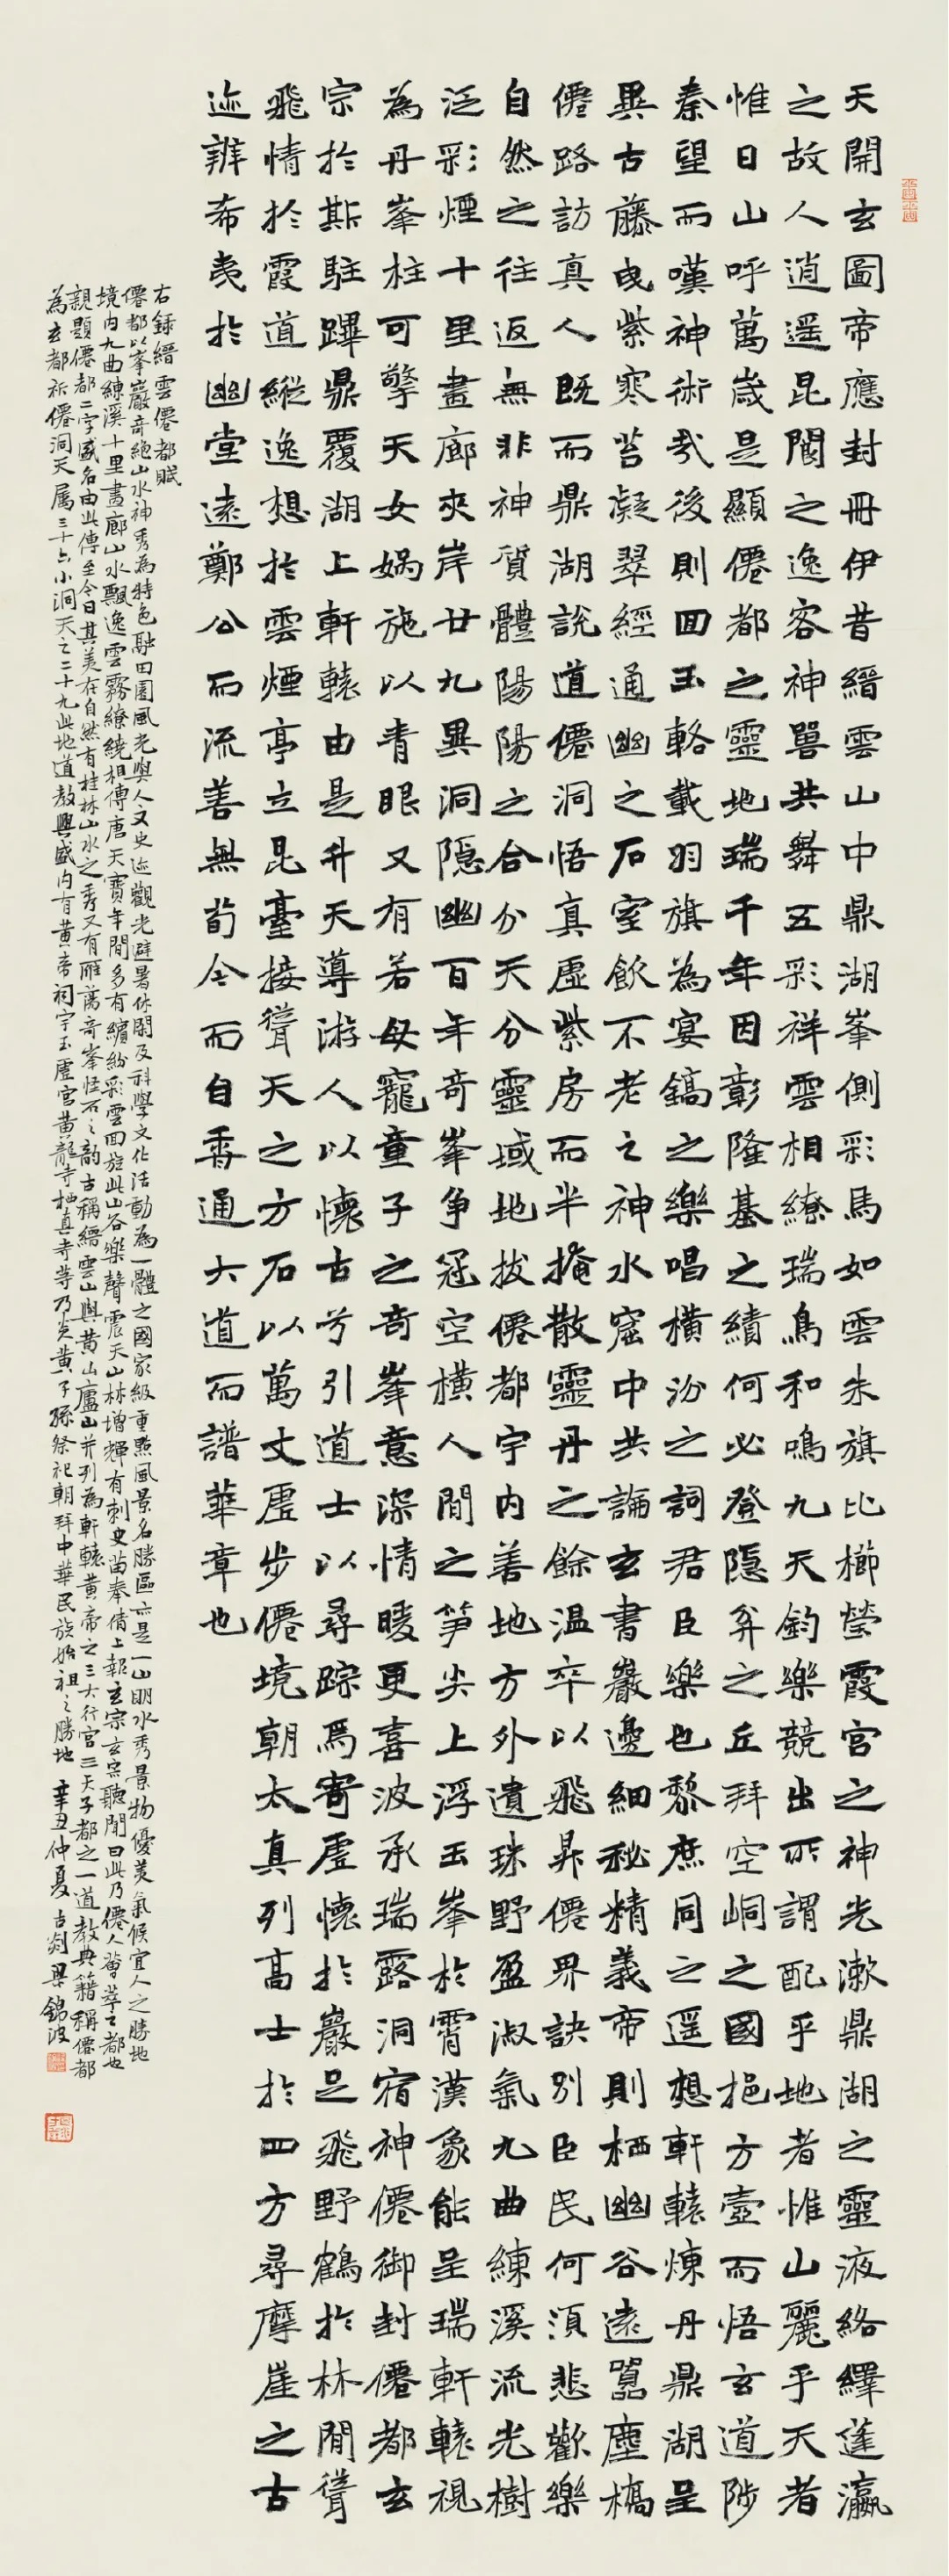 天開玄圖帝應封冊伊昔縉雲山中鼎湖峯側彩馬如雲朱旗比櫛瑩霞宮之神光漱鼎湖之靈液絡繹蓬瀛
之故人逍遥昆閬之逸客神獸共舞五彩祥雲相繚瑞鳥和鳴九天鈞樂競出所謂配乎地者惟山麗乎天者
惟日山呼萬歲是顯僊都之靈地瑞千年因彰隆基之績何必登隱弅之丘拜空峒之國挹方壺而悟玄道陟
秦望而嘆神術哉後則回玉輅載羽旗為宴鎬之樂唱橫汾之詞君臣樂也黎庶同之遥想軒轅煉丹鼎湖呈
異古藤曳紫寒苔凝翠經通幽之石室飲不老之神水窟中共論玄書巖邊細秘精義帝則栖幽谷遠囂塵構
僊路訪真人既而鼎湖說道僊洞悟真虛紫房而半掩散靈丹之餘温卒以飛昇僊界訣別臣民何須悲歡樂
自然之往返無非神質體陽陽之合分天分靈域地拔僊都宇内善地方外遺珠野盈淑氣九曲練溪流光樹
泛彩煙十里畫廊夾岸廿九異洞隱幽百年奇峯争冠空橫人間之筍尖上浮玉峯於霄漢象能呈瑞軒轅視
為丹峯柱可擎天女媧施以青眼又有若母寵童子之奇峯意深情暖更喜波承瑞露洞宿神僊御封僊都玄
宗於斯駐蹕鼎覆湖上軒轅由是升天導游人以懷古兮引道士以尋踪焉寄虛懷於巖足飛野鶴於林間聳
飛情於霞道縱逸想於雲煙亭立昆臺接聳天之方石以萬丈虛步僊境朝太真列高士於四方尋摩崖之古
迹辨希夷於幽堂遠鄭公而流善無荀令而自香通大道而譜華章也
右録縉雲僊都賦
僊都以峯巖奇絶山水神秀為特色融田園風光與人文史迹觀光避暑休閑及科學文化活動為一體之國家級重點風景名勝區亦是一山明水秀景物優美氣候宜人之勝地
境内九曲練溪十里畫廊山水飄逸雲霧繚繞相傳唐天寶年間多有繽紛彩雲回旋此山谷樂聲震天山林增輝有刺史苗奉倩上報玄宗玄宗聽聞曰此乃僊人薈萃之都也
親題僊都二字盛名由此傳至今日其美在自然有桂林山水之秀又有雁蕩奇峯怪石之韵古稱縉雲山與黄山廬山并列為軒轅黄帝之三大行宫三天子都之一道教典籍稱僊都
為玄都祈僊洞天属三十六小洞天之二十九此地道教興盛内有黄帝祠宇玉虛宫黄龍寺栖真寺等乃炎黄子孫祭祀朝拜中華民族始祖之勝地 辛丑仲夏 古剡梁錦波